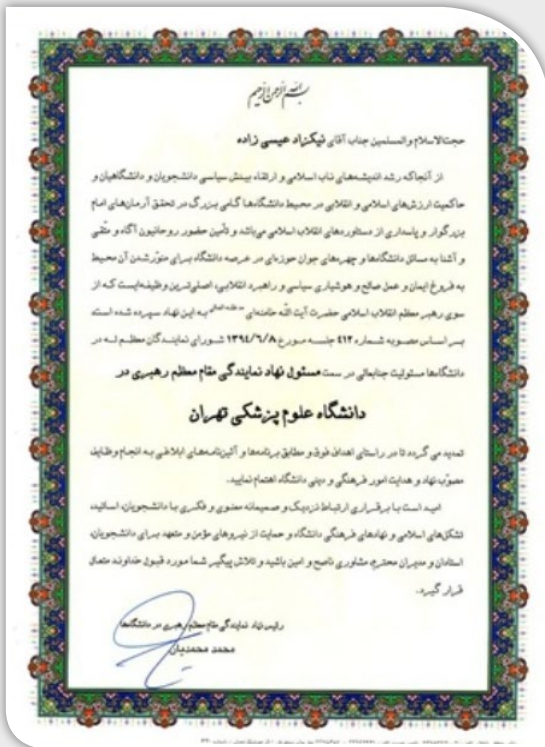 بسم الله الرحمن الرحیم
حجت‌الاسلام والمسلمین جناب آقای نیکزاد عیسی زاده
از آنجاکه رشد اندیشه‌های ناب اسلامی و ارتقاء بینش سیاسی دانشجویان و دانشگاهیان و
حاکمیت ارزش‌های اسلامی و انقلابی در محیط دانشگاه‌ها گامی بزرگ در تحقق آرمان‌های امام
بزرگوار و پاسداری از دستاوردهای انقلاب اسلامی می‌باشد و تأمین حضور روحانیون آگاه و متّقی
و آشنا به مسائل دانشگاه‌ها و چهره‌های جوان حوزه‌ای در عرصه دانشگاه برای منوّر شدن آن محیط
به فروغ ایمان و عمل صالح و هوشیاری سیاسی و راهبرد انقلابی، اصلی‌ترین وظیفه‌ایست که از
سوی رهبر معظم انقلاب اسلامی حضرت آیت الله خامنه‌ای به این نهاد سپرده شده است،
بر اساس مصوبه شماره ۴۱۲ جلسه مورخ ۱۳۹۴/۶/۸ شورای نمایندگان معظم له در
دانشگاه‌ها مسئولیت جنابعالی در سمت مسئول نهاد نمایندگی مقام معظم رهبری در
دانشگاه علوم پزشکی تهران
تمدید می گردد تا در راستای اهداف فوق و مطابق برنامه‌ها و آئین‌نامه‌های ابلاغی به انجام وظایف
مصوّب نهاد و هدایت امور فرهنگی و دینی دانشگاه اهتمام نمایید.
امید است با برقراری ارتباط نزدیک و صمیمانه معنوی و فکری با دانشجویان، اساتید،
تشکل‌های اسلامی و نهادهای فرهنگی دانشگاه و حمایت از نیروهای مؤمن و متعهد برای دانشجویان،
استادان و مدیران محترم، مشاوری ناصح و امین باشید و تلاش پیگیر شما مورد قبول خداوند متعال
قرار گیرد.
رئیس نهاد نمایندگی مقام معظم رهبری در دانشگاه‌ها
محمد محمدیان